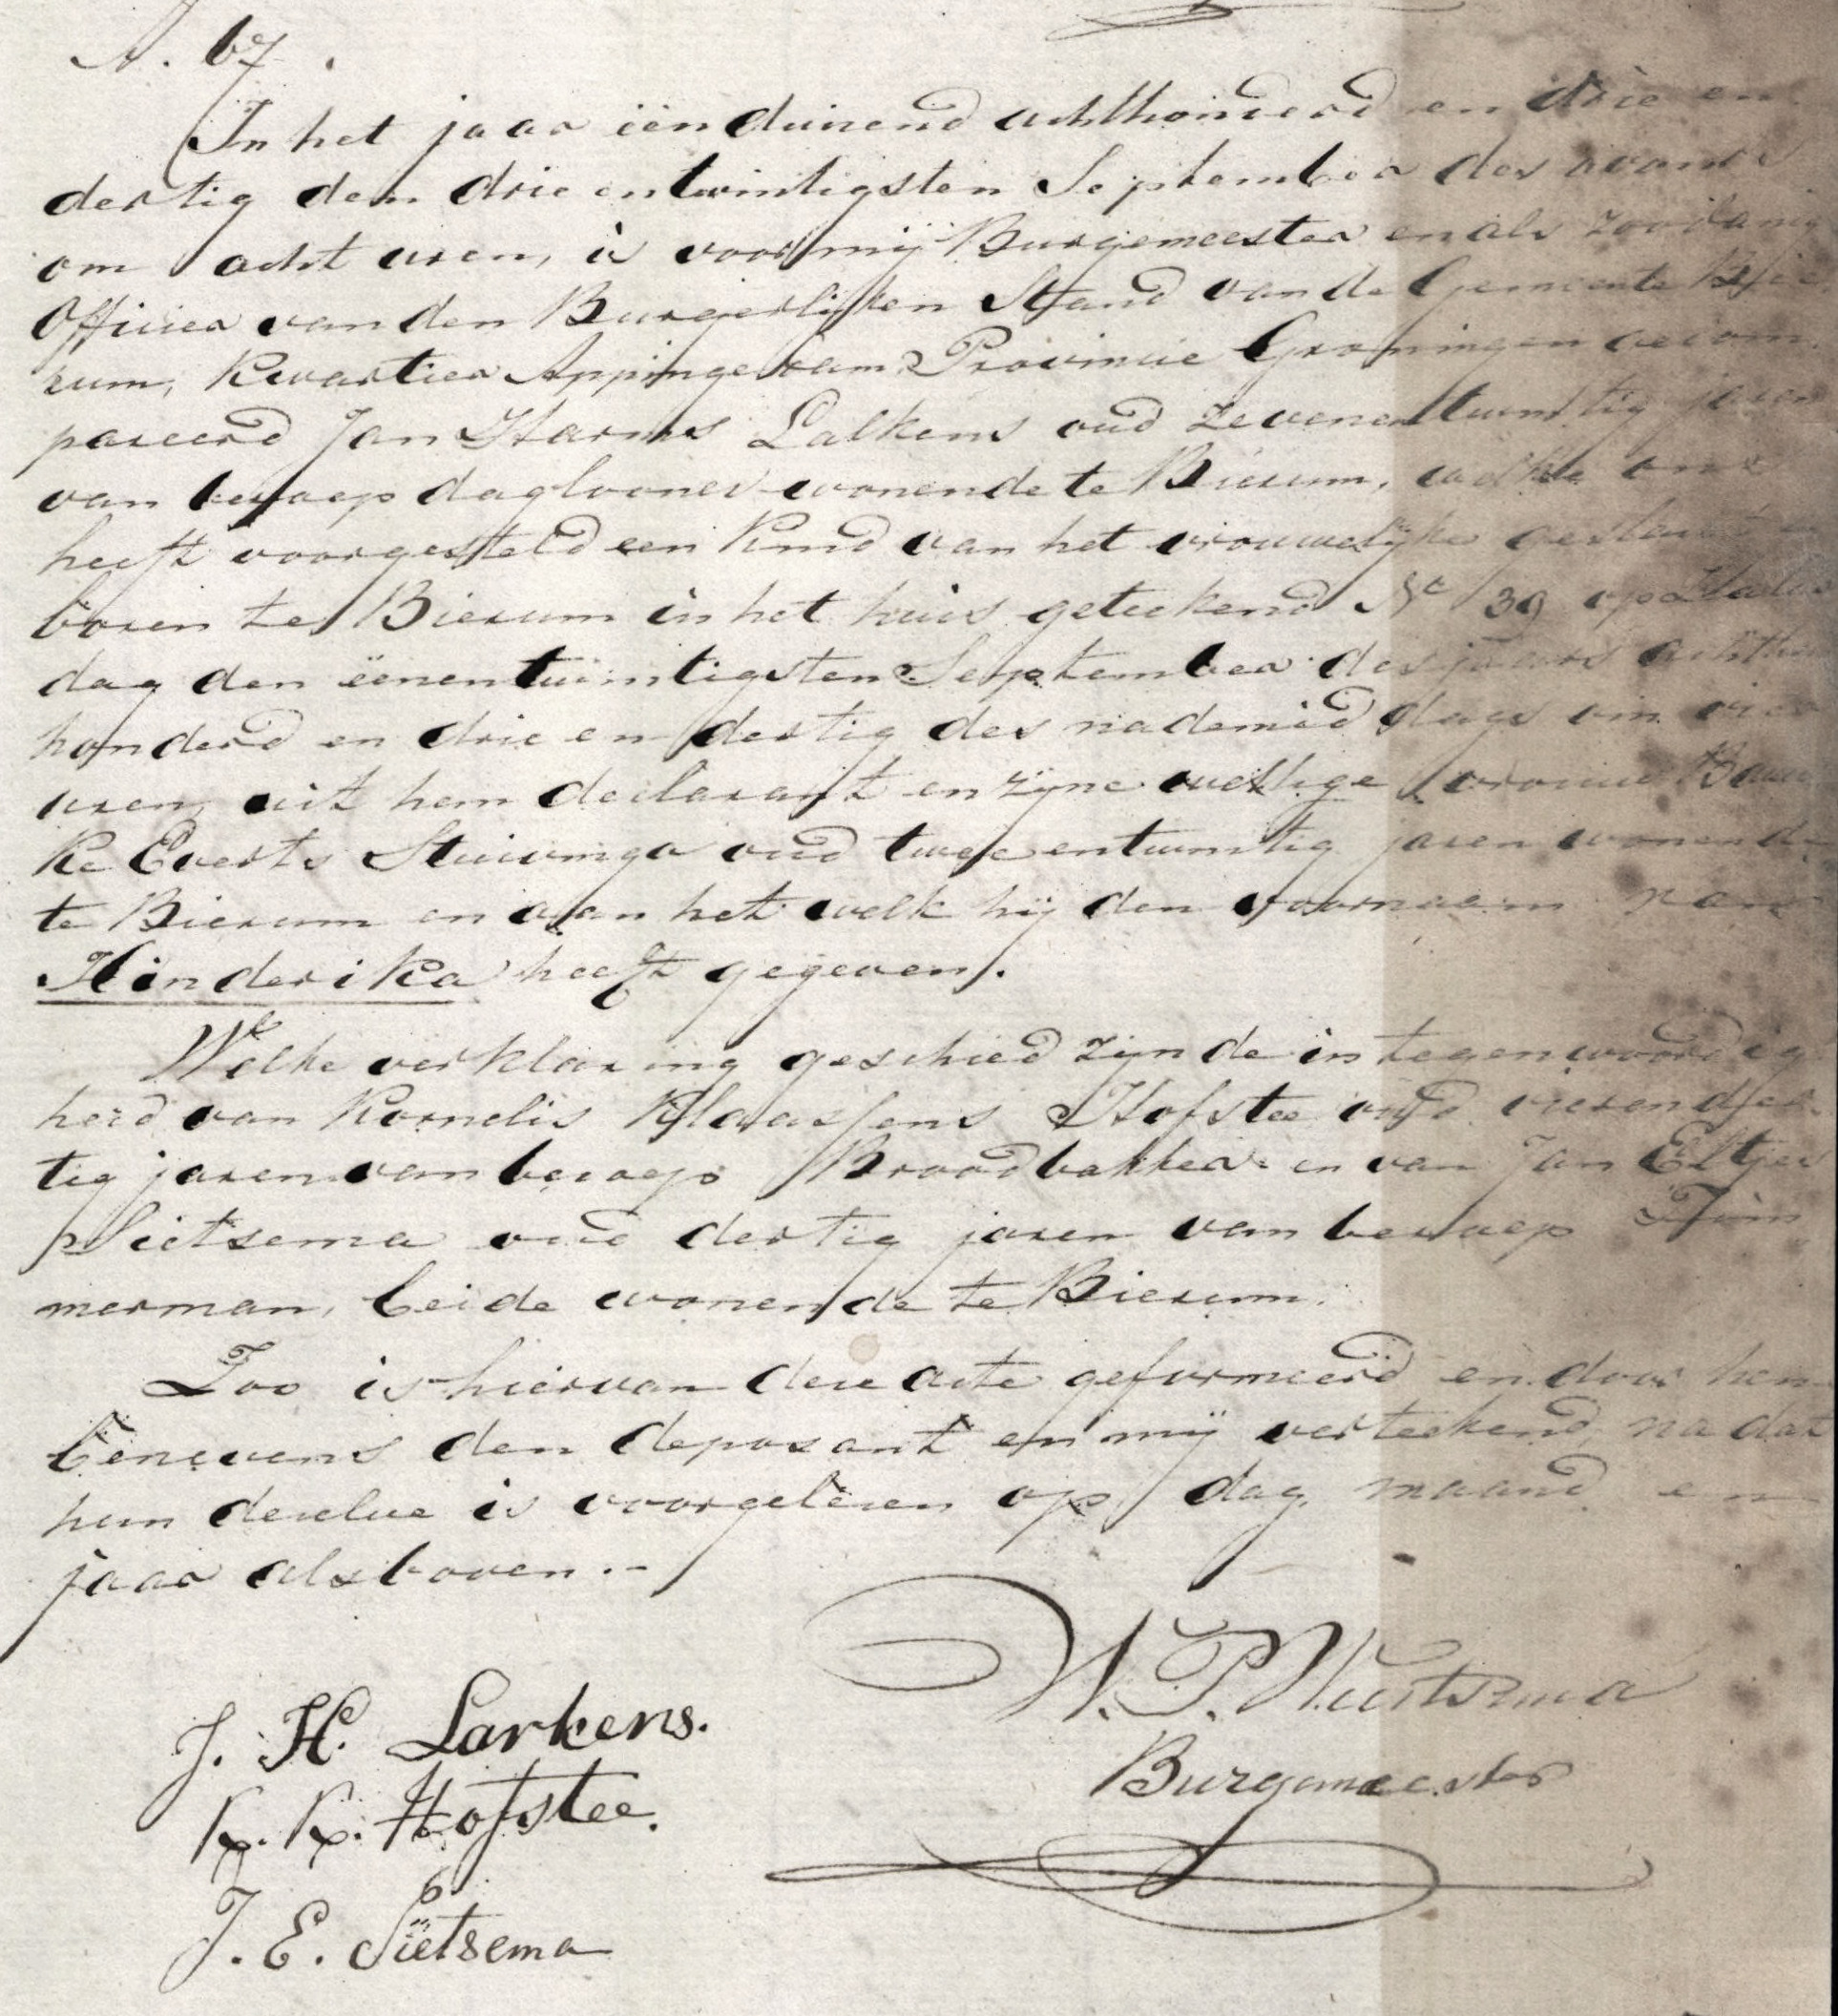 N. 67.
In het jaar één duizend achthonderd en drie en
dertig den drie entwintigsten September des avonds
om acht uren, is voor mij Burgemeester en als zoodanig
Officier van den Burgerlijken Stand van de Gemeente Bie
rum, Kwartier Appingedam Provincie Groningen gecom
pareerd Jan Harms Lalkens oud zevenentwintig jaren
van beroep daglooner wonende te Bierum, welke ons
heeft voorgesteld een Kind van het vrouwelijke geslacht
boren te Bierum in het huis geteekend No 39 op Zatur
dag den ëenentwintigsten September des jaars achttien
honderd en drie en dertig des nademiddags om vier
uren, uit hem declarant en zijne wettige vrouw Bau
ke Everts Stuivinga oud twee entwintig jaren wonende
te Bierum en aan het welk hij den voornaam van
Hinderika heeft gegeven.
Welke verklaring geschied zijnde in tegenwoordig
heid van Kornelis Klaassens Hofstee oud vierender
tig jaren van beroep Broodbakker en van Jan Eltjes
Sietsema oud dertig jaren van beroep Tim
merman, beide wonende te Bierum.
Zoo is hiervan deze acte geformeerd en door hen
benevens den deposant en mij verteekend, na dat
hun dezelve is voorgelezen op dag, maand en
jaar alsboven.-
W. P. Wiertsema
Burgemeester
J. H. Larkens.
K. K. Hofstee.
J. E. Sietsema